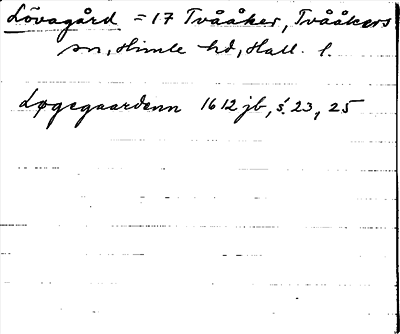 Lövagård = 17 Tvååker, Tvååkers
sn, Himle hd, Hall. l.
Løgegaardenn 1612 jb, s. 23, 25